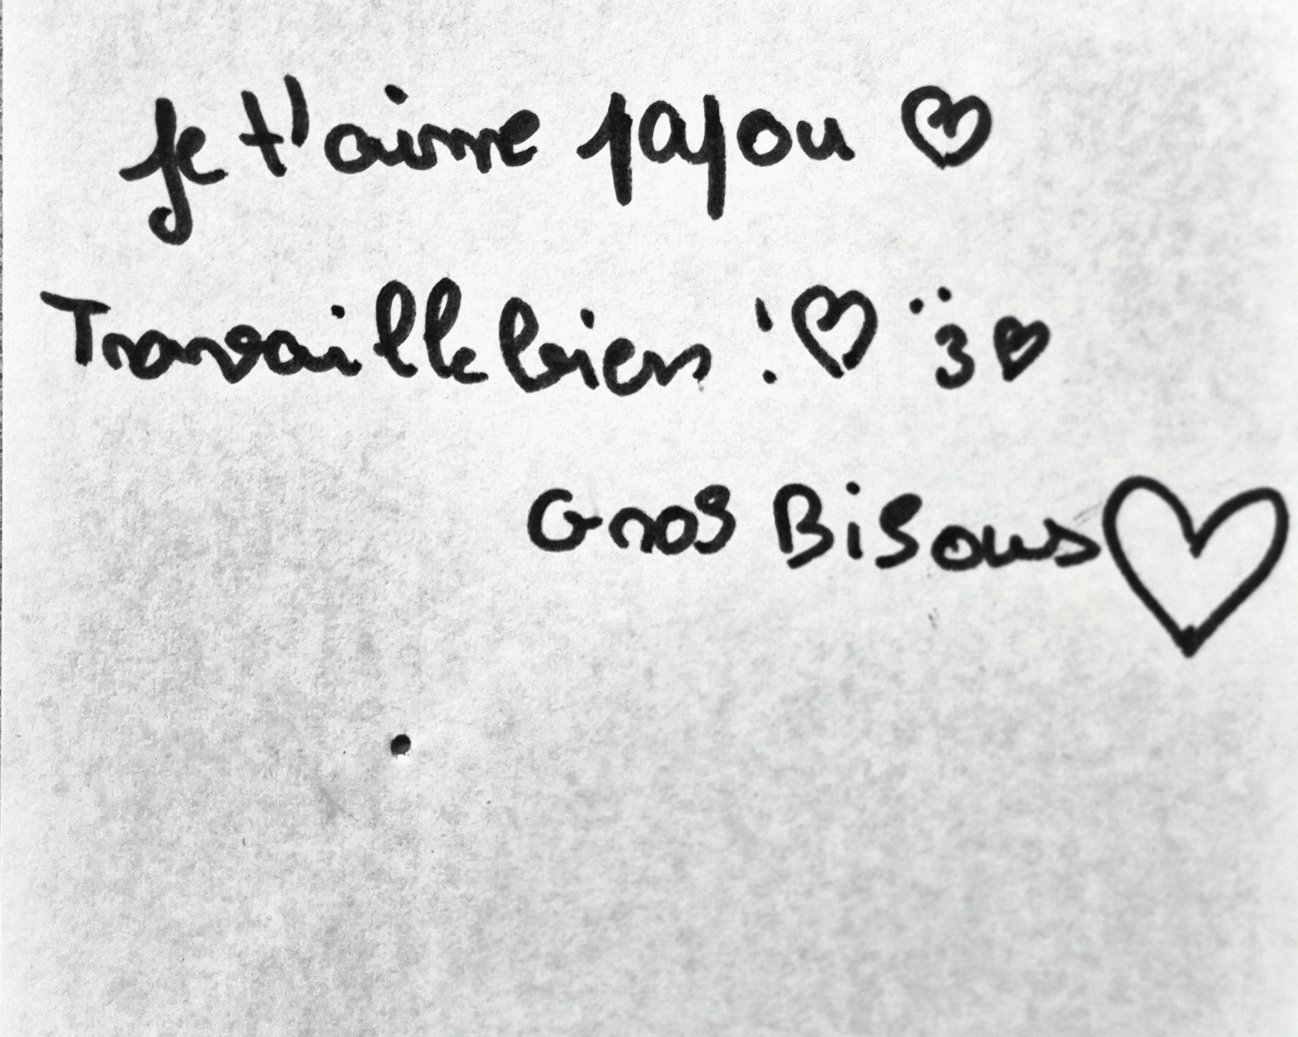 Je t'aime papou ♡
Travaille bien ! ♡ ¨3♥
Gros Bisous ♡